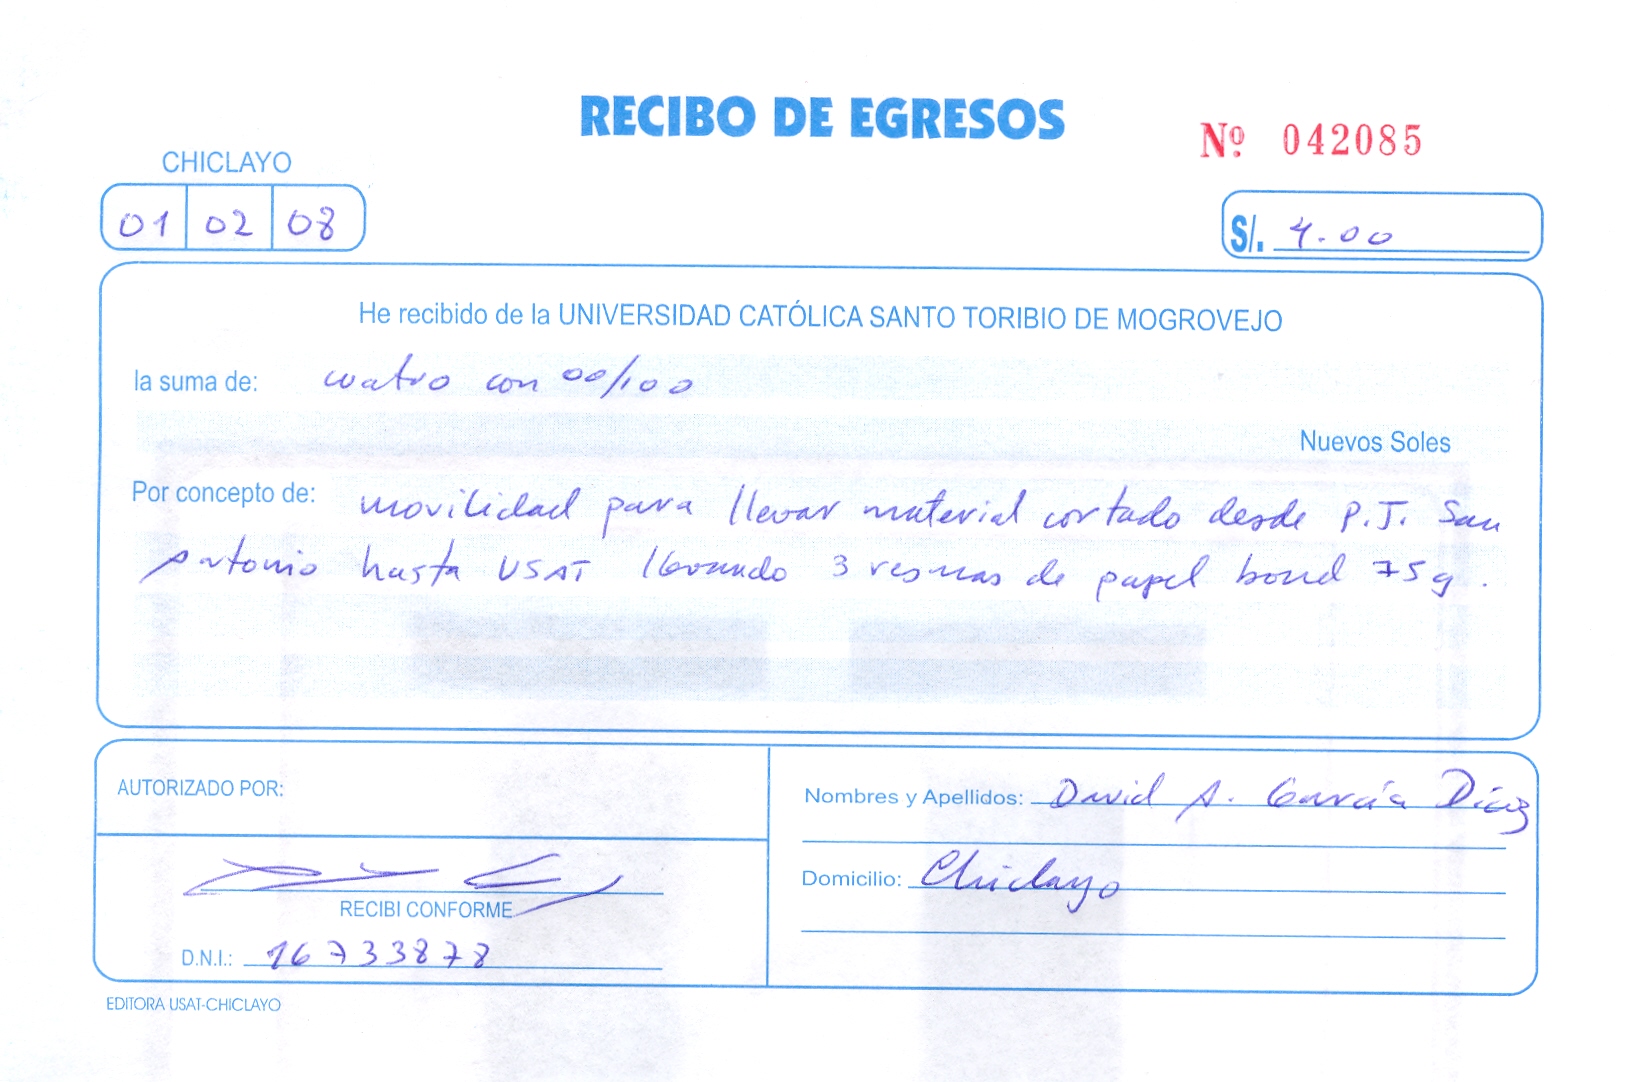 RECIBO DE EGRESOS
Nº 042085
CHICLAYO
01 02 08
S/. 4.00
He recibido de la UNIVERSIDAD CATÓLICA SANTO TORIBIO DE MOGROVEJO
la suma de: cuatro con 00/100
Nuevos Soles
Por concepto de: movilidad para llevar material cortado desde P.J. San
Antonio hasta USAT llevando 3 resmas de papel bond 75g.
AUTORIZADO POR:
Nombres y Apellidos: David A. García Díaz
Domicilio: Chiclayo
RECIBI CONFORME
D.N.I.: 16733878
EDITORA USAT-CHICLAYO